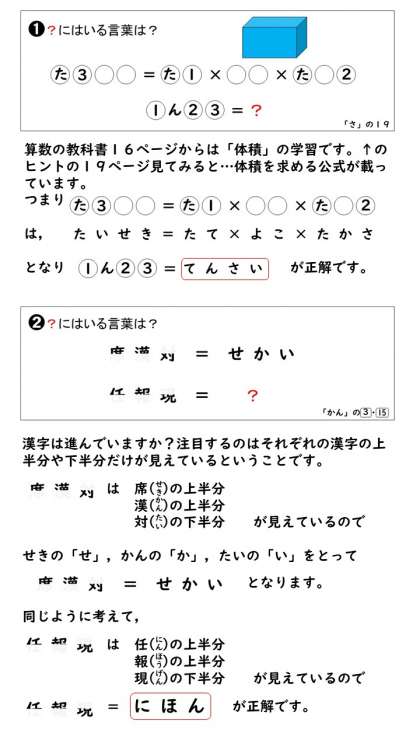 ❶?にはいる言葉は?
た③○○=た①×○○×た○②
①ん②③=?
「さ」の19
算数の教科書16ページからは「体積」の学習です。↑の
ヒントの19ページ見てみると…体積を求める公式が載っ
ています。
つまり た③○○=た①×○○×た○②
は, たいせき=たて×よこ×たかさ
となり ①ん②③=てんさい が正解です。
❷?にはいる言葉は?
席 漢 対 = せかい
任 報 現 = ?
「かん」の3・15
漢字は進んでいますか?注目するのはそれぞれの漢字の上
半分や下半分だけが見えているということです。
席 漢 対 は 席(せき)の上半分
漢(かん)の上半分
対(たい)の下半分 が見えているので
せきの「せ」,かんの「か」,たいの「い」をとって
席 漢 対 = せかい となります。
同じように考えて,
任 報 現 は 任(にん)の上半分
報(ほう)の上半分
現(げん)の下半分 が見えているので
任 報 現 = にほん が正解です。